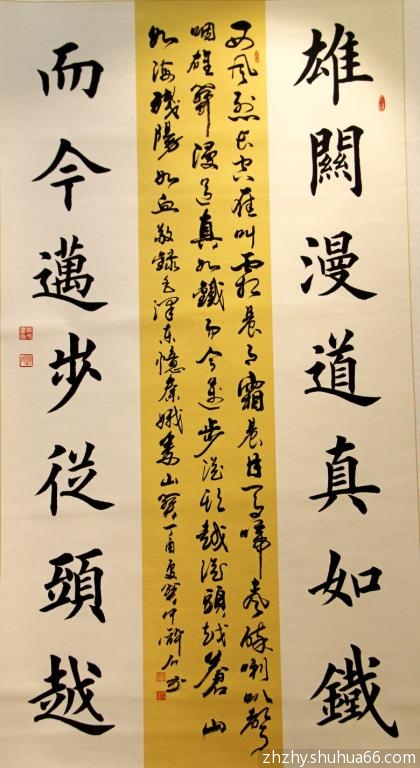 雄關漫道真如鐵
西風烈長空雁叫霜晨月霜晨月馬啼聲碎喇叭聲
咽雄關漫道真如鐵而今邁步從頭越從頭越蒼山
如海殘陽如血敬錄毛澤東憶秦娥婁山關丁酉夏書
而今邁步從頭越
zhzhy.shuhua66.com